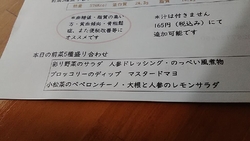 ※赤婦病・脂質の高い
方・貧血傾向・骨粗鬆
症、また便秘改善等に
オススメです
※汁は付きません
165円(税込み)にて
追加可能です
本日の前菜5種盛り合わせ
彩り野菜のサラダ 人参ドレッシング・のっぺい風煮物
ブロッコリーのディップ マスタードマヨ
小松菜のペペロンチーノ・大根と人参のレモンサラダ